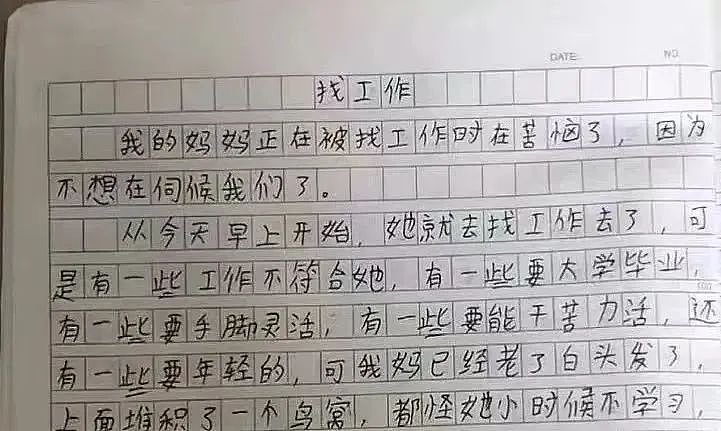 DATE NO
找工作
我的妈妈正在被找工作时在苦恼了，因为
不想在伺候我们了。
从今天早上开始，她就去找工作去了，可
是有一些工作不符合她，有一些要大学毕业，
有一些要手脚灵活，有一些要能干苦力活，还
有一些要年轻的，可我妈已经老了白头发了，
上面堆积了一个鸟窝，都怪她小时候不学习，